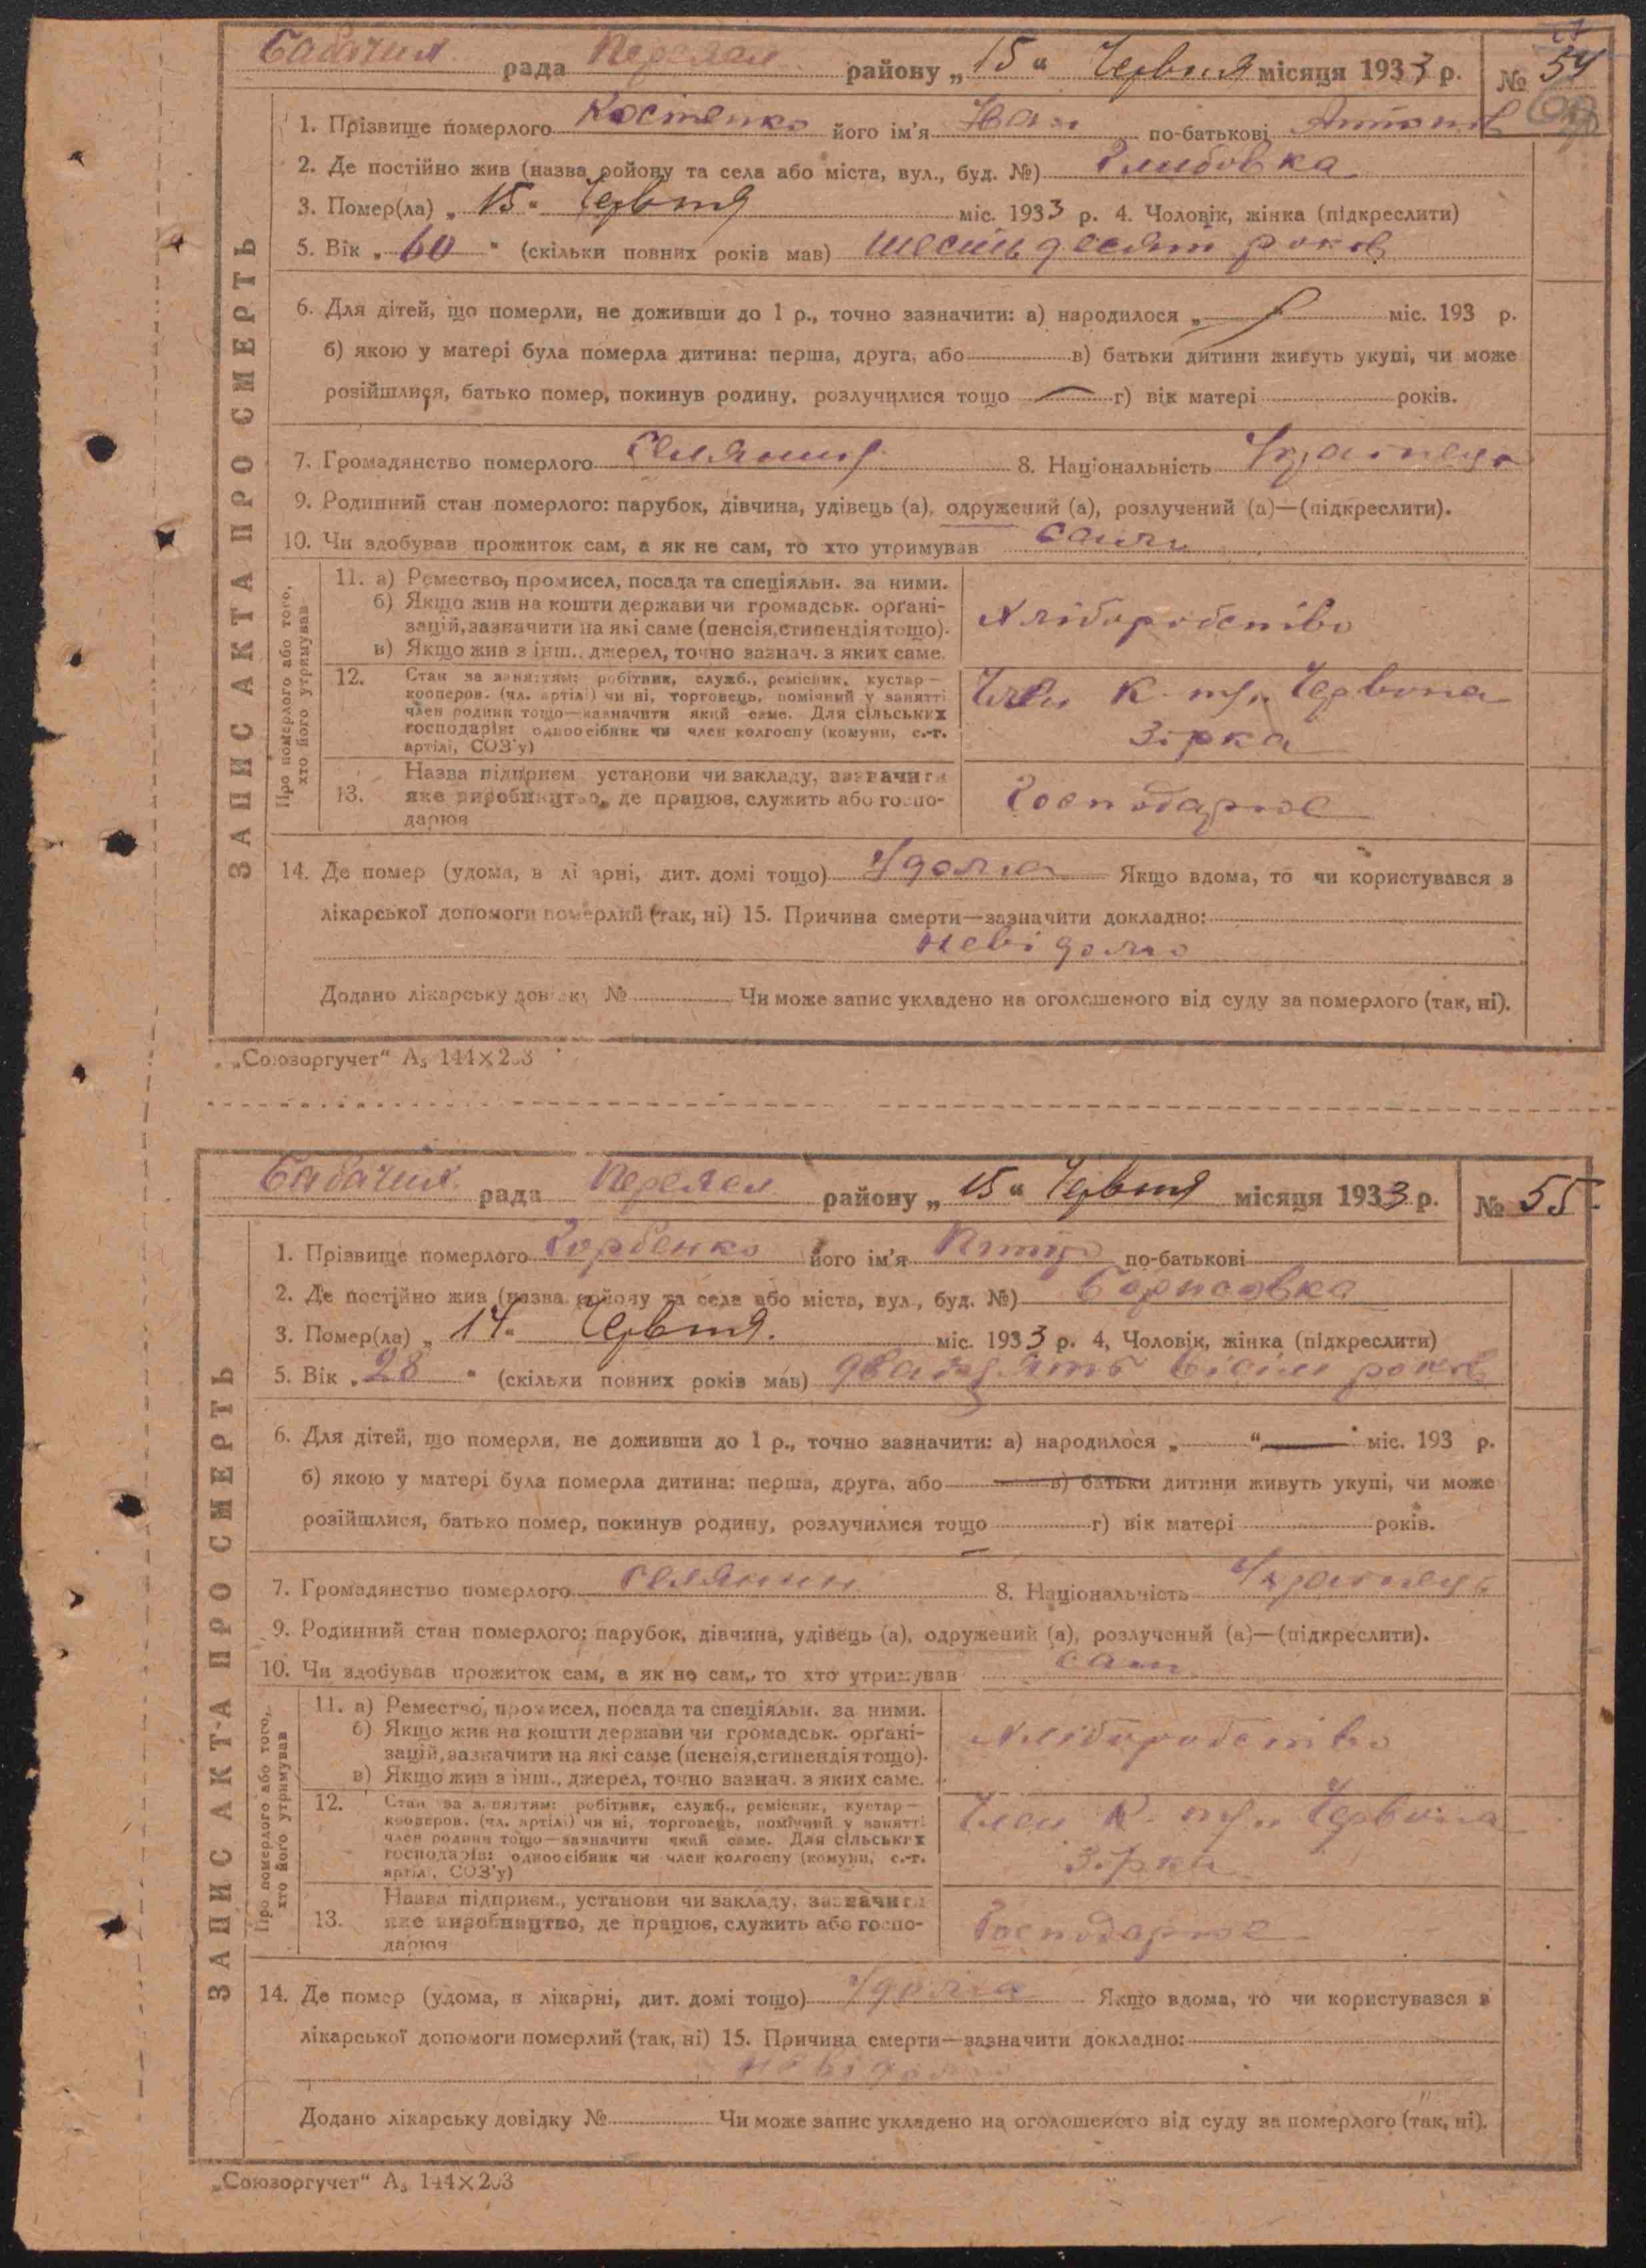 Бабачих. рада Переясл. району „15“ Червня місяця 1933 р. № 54
1. Прізвище померлого Костенко його ім'я Іван по-батькові Антонов
2. Де постійно жив (назва ройону та села або міста, вул., буд. №)
3. Помер(ла) „15“ Червня міс. 1933 р. 4. Чоловік, жінка (підкреслити)
5. Вік „60“ (скільки повних років мав) шестьдесят роков
6. Для дітей, що померли, не доживши до 1 р., точно зазначити: а) народилося „ міс. 193 р.
б) якою у матері була померла дитина: перша, друга, або в) батьки дитини живуть укупі, чи може
розійшлися, батько помер, покинув родину, розлучилися тощо г) вік матері років.
7. Громадянство померлого Селянин 8. Національність Українець
9. Родинний стан померлого: парубок, дівчина, удівець (а), одружений (а), розлучений (а)—(підкреслити).
10. Чи здобував прожиток сам, а як не сам, то хто утримував сам
ЗАПИС АКТА ПРО СМЕРТЬ
Про померлого або того, хто його утримував
11. а) Ремество, промисел, посада та спеціяльн. за ними.
б) Якщо жив на кошти держави чи громадськ. органі-
зацій, зазначити на які саме (пенсія, стипендія тощо).
в) Якщо жив з інш., джерел, точно зазнач. з яких саме.
Хліборобство
12. Стан за заняттям: робітник, служб., ремісник, кустар—
кооперов. (чл. артілі) чи ні, торговець, помічний у занятті
член родини тощо—зазначити який саме. Для сільських
господарів: одноосібник чи член колгоспу (комуни, с.-г.
артілі, СОЗ'у)
Член Червона
Зірка
Назва підприєм. установи чи закладу, зазначити
13. яке виробництво, де працює, служить або госпо-
дарює
Господарює
14. Де помер (удома, в лікарні, дит. домі тощо) Удома Якщо вдома, то чи користувався з
лікарської допомоги померлий (так, ні) 15. Причина смерти—зазначити докладно:
невідомо
Додано лікарську довідку № Чи може запис укладено на оголошеного від суду за померлого (так, ні).
„Союзоргучет“ А₅ 144×203
Бабачих. рада Переясл. району „15“ Червня місяця 1933 р. № 55
1. Прізвище померлого Горбенко його ім'я по-батькові
2. Де постійно жив (назва ройону та села або міста, вул., буд. №) Борисовка
3. Помер(ла) „14“ Червня. міс. 1933 р. 4, Чоловік, жінка (підкреслити)
5. Вік „28“ (скільки повних років мав) двадцять вісім роков
6. Для дітей, що померли, не доживши до 1 р., точно зазначити: а) народилося „ “ міс. 193 р.
б) якою у матері була померла дитина: перша, друга, або в) батьки дитини живуть укупі, чи може
розійшлися, батько помер, покинув родину, розлучилися тощо г) вік матері років.
7. Громадянство померлого селянин 8. Національність Українець
9. Родинний стан померлого: парубок, дівчина, удівець (а), одружений (а), розлучений (а)—(підкреслити).
10. Чи здобував прожиток сам, а як не сам, то хто утримував сам
ЗАПИС АКТА ПРО СМЕРТЬ
Про померлого або того, хто його утримував
11. а) Ремество, промисел, посада та спеціяльн. за ними.
б) Якщо жив на кошти держави чи громадськ. органі-
зацій, зазначити на які саме (пенсія, стипендія тощо).
в) Якщо жив з інш., джерел, точно зазнач. з яких саме.
Хліборобство
12. Стан за заняттям: робітник, служб., ремісник, кустар—
кооперов. (чл. артілі) чи ні, торговець, помічний у занятті
член родини тощо—зазначити який саме. Для сільських
господарів: одноосібник чи член колгоспу (комуни, с.-г.
артілі, СОЗ'у)
Член Червона
Зірка
Назва підприєм., установи чи закладу, зазначити
13. яке виробництво, де працює, служить або госпо-
дарює
Господарює
14. Де помер (удома, в лікарні, дит. домі тощо) Удома Якщо вдома, то чи користувався з
лікарської допомоги померлий (так, ні) 15. Причина смерти—зазначити докладно:
невідомо
Додано лікарську довідку № Чи може запис укладено на оголошеного від суду за померлого (так, ні).
„Союзоргучет“ А₅ 144×203